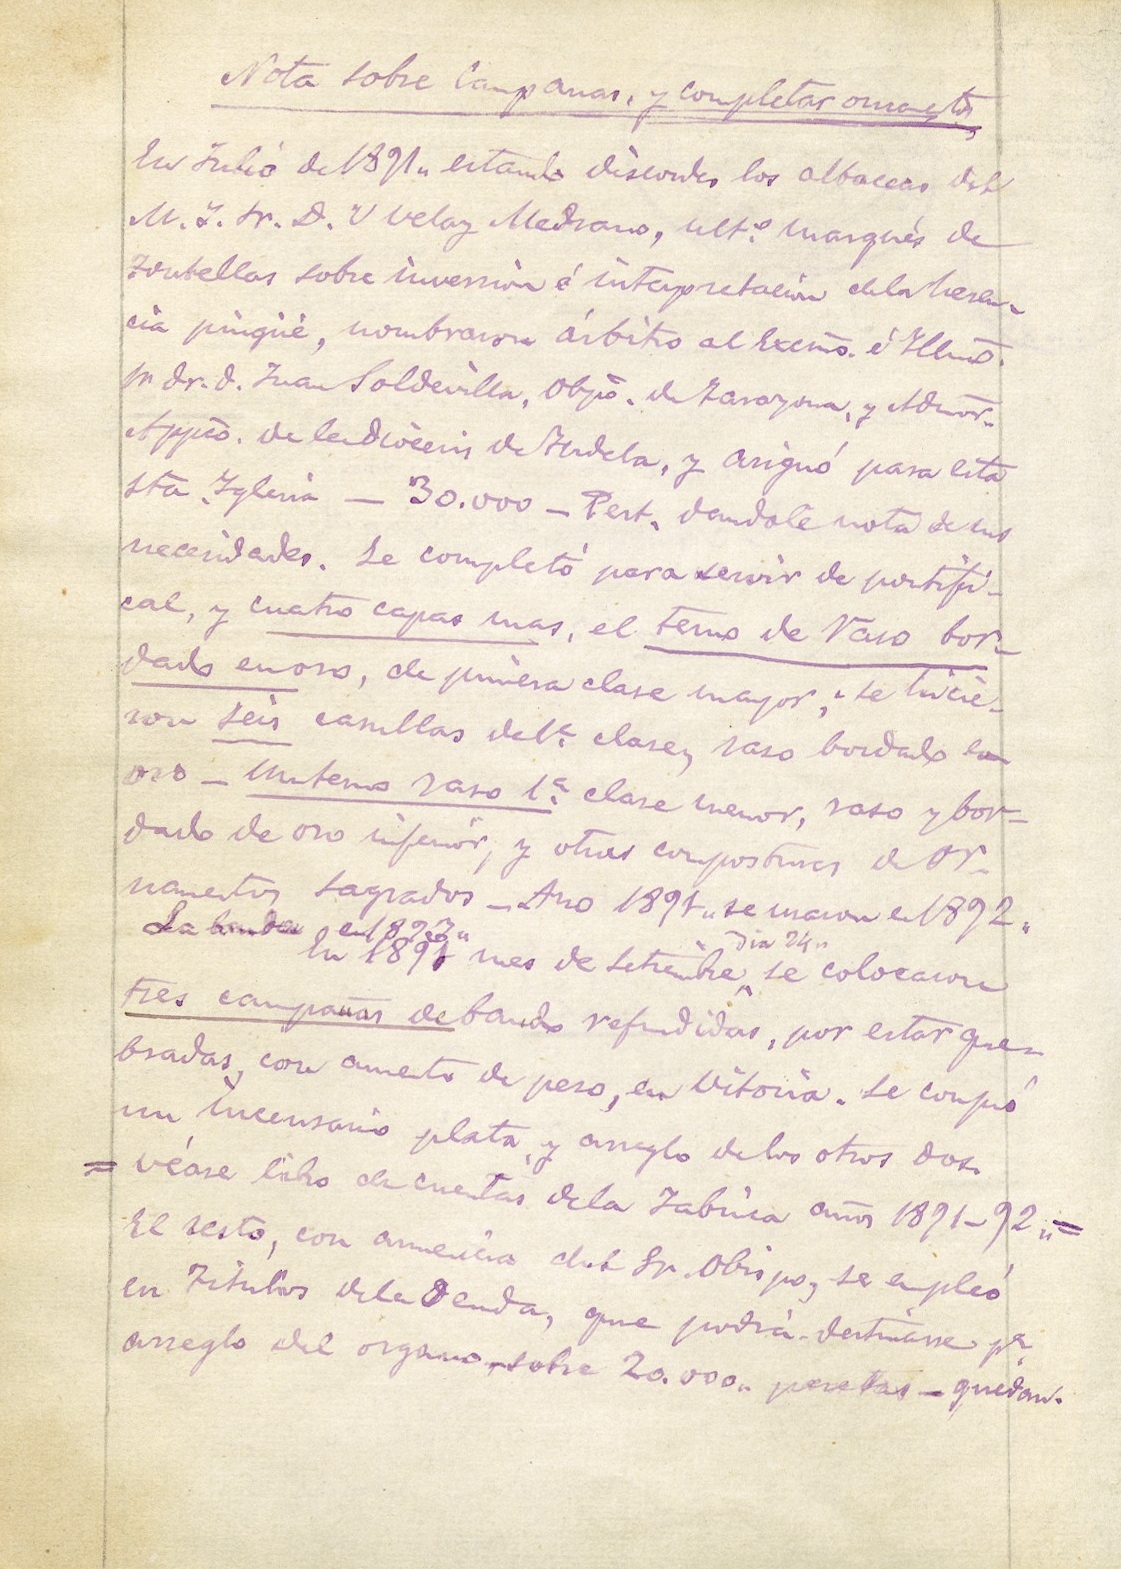 Nota sobre Campanas, y completar ornamtos
En Julio de 1891„ estando discordes los albaceas del
M. I. Sr. D. V Velaz Medrano, ult.º marqués de
Fontellas sobre inversión é interpretación dela heren-
cia pingüe, nombraron árbitro al Excmo. é Illmo.
Sr Dr. D. Juan Soldevilla, Obpo. de Tarazona, y Admor.
Appco. de la diócesis de Tudela, y asignó para esta
Sta Iglesia — 30.000 — Pest. dandole nota de sus
necesidades. Se completó para servir de pontifi-
cal, y cuatro capas mas, el terno de raso bor-
dado en oro, de primera clase mayor, se hicie-
ron seis casullas de 1ª clase, raso bordado en
oro — Un terno raso 1ª clase menor, raso y bor-
dado de oro inferior, y otras composturas de or-
namentos sagrados — Año 1891„ se usaron en 1892„
La en 1893„
En 1891 mes de Setiembre, dia 24„ se colocaron
tres campanas de bando refundidas, por estar que-
bradas, con aumento de peso, en Vitoria. Se compró
un incensario plata, y arreglo de los otros dos.
= véase libro de cuentas dela Fabrica años 1891-92„ =
El resto, con anuencia del Sr. Obispo, se empleó
en Titulos dela Deuda, que podrá destinarse pª
arreglo del organo, sobre 20.000„ pesetas — quedan.